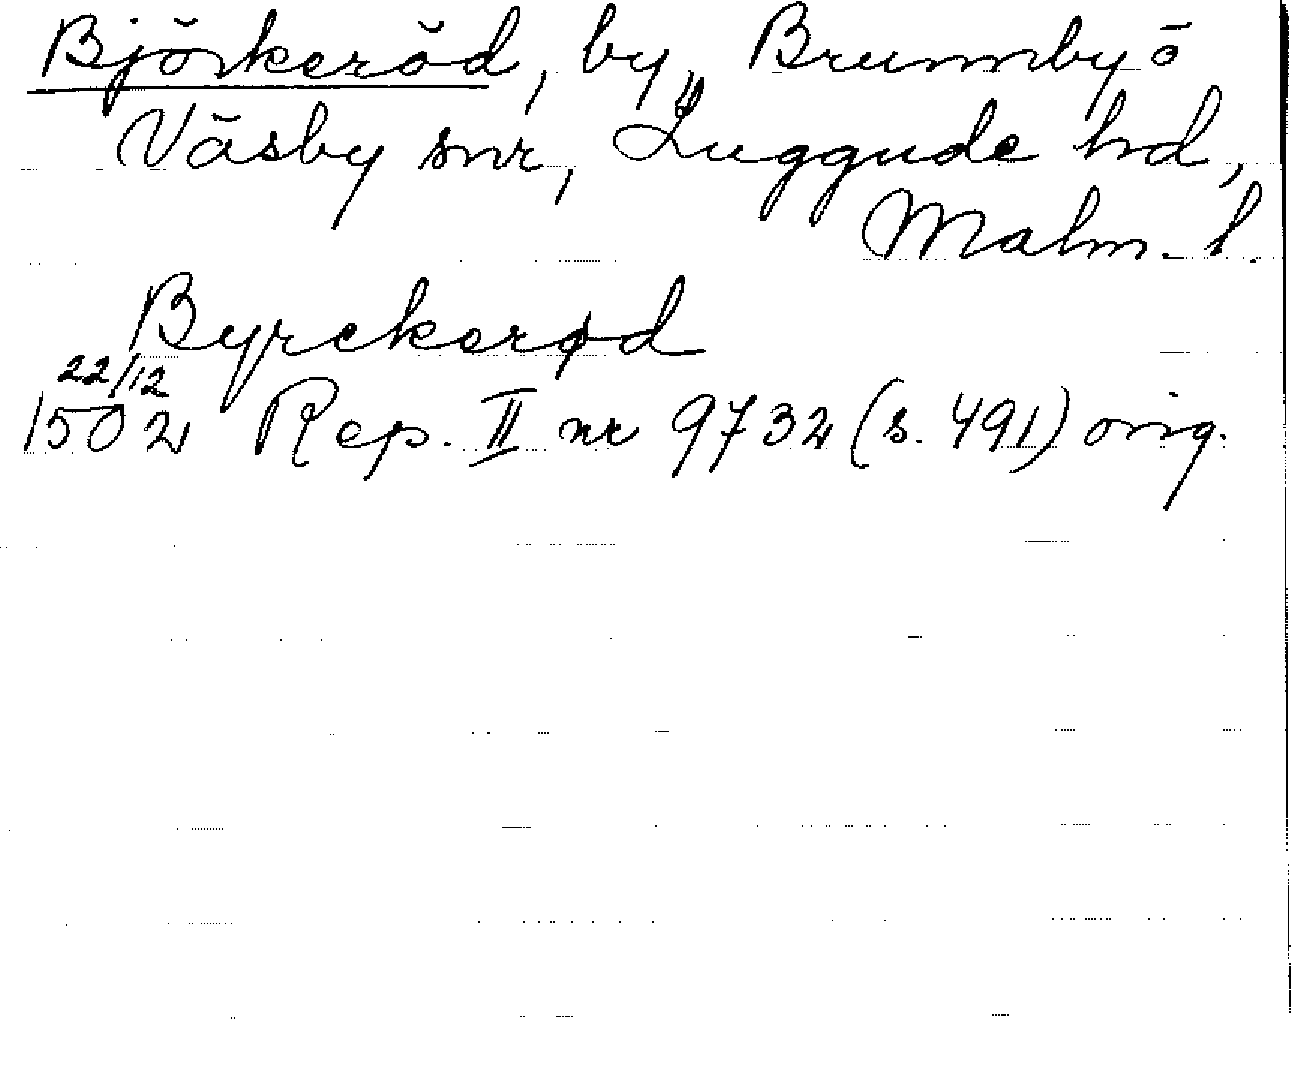 Björkeröd, by, Brunnby o
Väsby snr, Luggude hd,
Malm. l.
Byrckerød
22/12
1502 Rep. II nr 9732 (s. 491) orig.